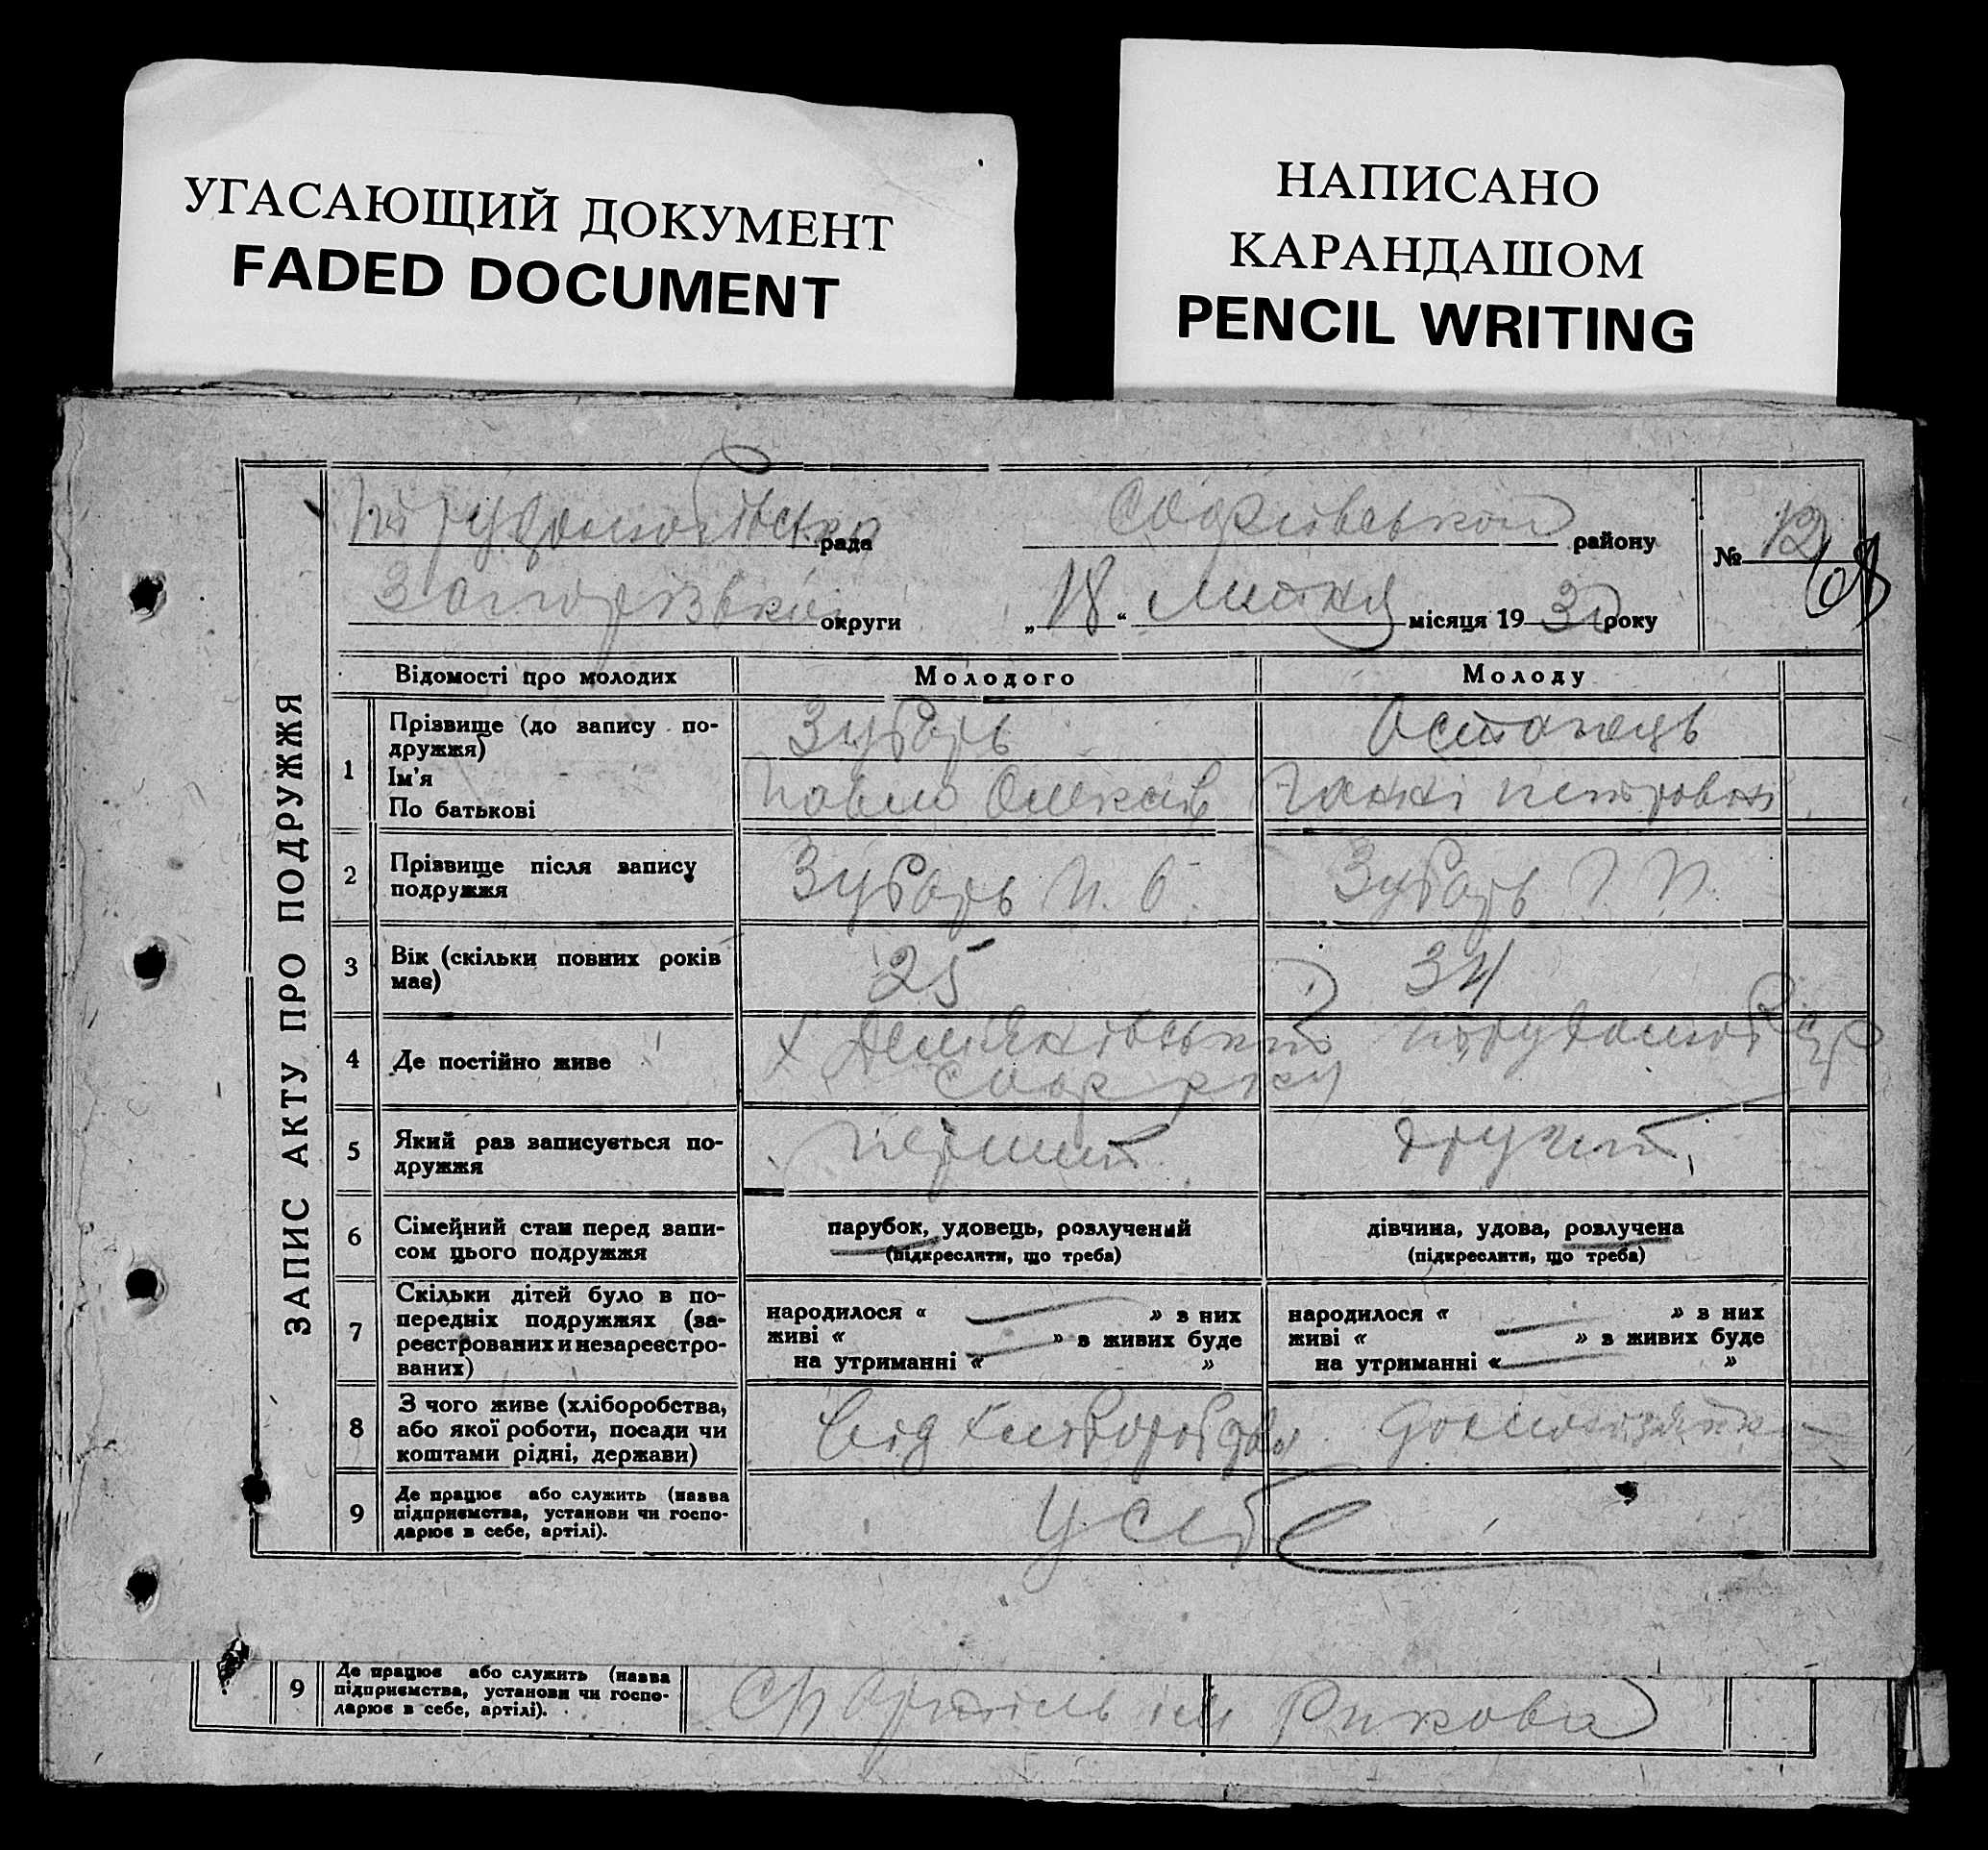 УГАСАЮЩИЙ ДОКУМЕНТ
FADED DOCUMENT
НАПИСАНО
КАРАНДАШОМ
PENCIL WRITING
ЗАПИС АКТУ ПРО ПОДРУЖЖЯ
рада
району
№ 12
округи
„ 18 “ липня місяця 19 30 року
Відомості про молодих Молодого Молоду
1 Прізвище (до запису по-
дружжя)
Ім'я
По батькові
Зубарь
Павло Олексів
Остапець
Ганні Петровні
2 Прізвище після запису
подружжя
Зубарь П. О.
Зубарь Г. П.
3 Вік (скільки повних років
має)
25
34
4 Де постійно живе
5 Який раз записується по-
дружжя
перший
другий
6 Сімейний стан перед запи-
сом цього подружжя
парубок, удовець, розлучений
(підкреслити, що треба)
дівчина, удова, розлучена
(підкреслити, що треба)
7 Скільки дітей було в по-
передніх подружжях (за-
реєстрованих и незареєстро-
ваних)
народилося « » в них
живі « » в живих буде
на утриманні « »
народилося « » в них
живі « » в живих буде
на утриманні « »
8 З чого живе (хліборобства,
або якої роботи, посади чи
коштами рідні, держави)
від хліборобства
домохозяйка
9 Де працює або служить (назва
підприємства, установи чи госпо-
дарює в себе, артілі).
у себе
9 Де працює або служить (назва
підприємства, установи чи госпо-
дарює в себе, артілі).
артіль ім Рикова